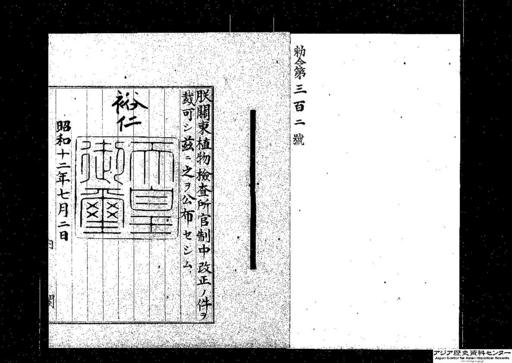 勅令第三百二號
朕關東植物檢查所官制中改正ノ件ヲ
裁可シ茲ニ之ヲ公布セシム
裕仁
天皇御璽
昭和十二年七月二日
内閣
アジア歴史資料センター
Japan Center for Asian Historical Records